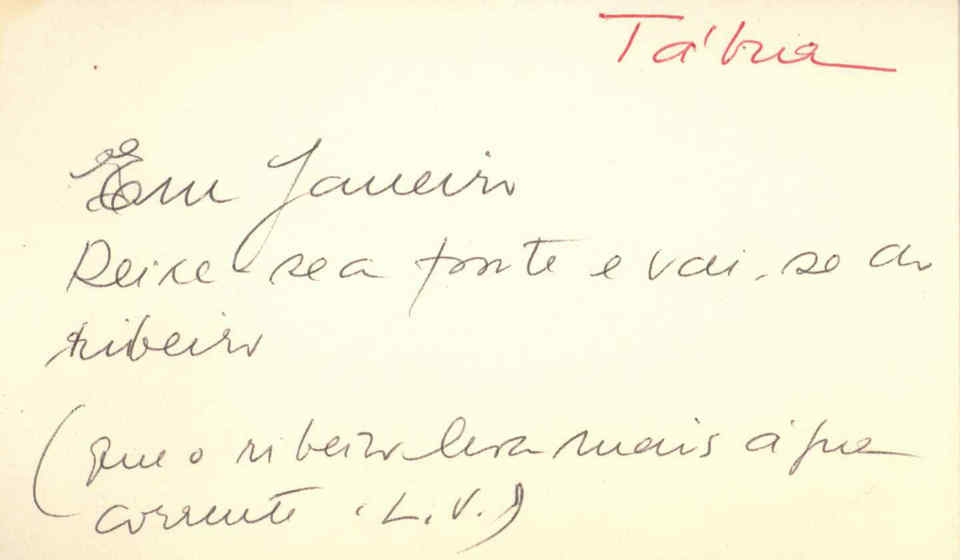 Tábua
Em Janeiro
Deixe-se a fonte e vai-se ao
ribeiro
(que o ribeiro leva mais água
corrente. L.V.)